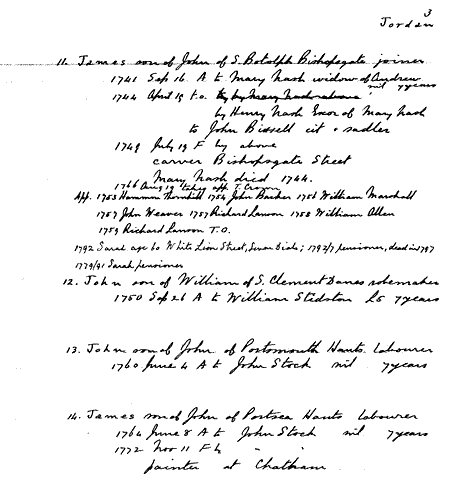 3
Jordan
11. James son of John of S. Botolph Bishopsgate joiner
1741 Sep 16. A to Mary Nash widow of Andrew
nil 7 years
1744 April 19 t.o. by Mary Nash above
by Henry Nash Exor of Mary Nash
to John Bissell cit & sadler
1749 July 19 F by above
carver Bishopsgate Street
Mary Nash died 1744.
1766 Aug 19 taking app T. Craven
App. 1753 Hammon Thornhill 1754 John Barker 1756 William Marshall
1757 John Weaver 1757 Richard Lawson 1758 William Allen
1759 Richard Lawson T.O.
1792 Sarah age 60 White Lion Street, Seven Dials; 1792/7 pensioner, dead in 1797
1779/91 Sarah pensioner
12. John son of William of S. Clement Danes robemaker
1750 Sep 26 A to William Stedston £5 7 years
13. John son of John of Portsmouth Hants labourer
1760 June 4 A to John Stock nil 7 years
14. James son of John of Portsea Hants labourer
1764 June 8 A to John Stock nil 7 years
1772 Nov 11 F by " "
painter at Chatham